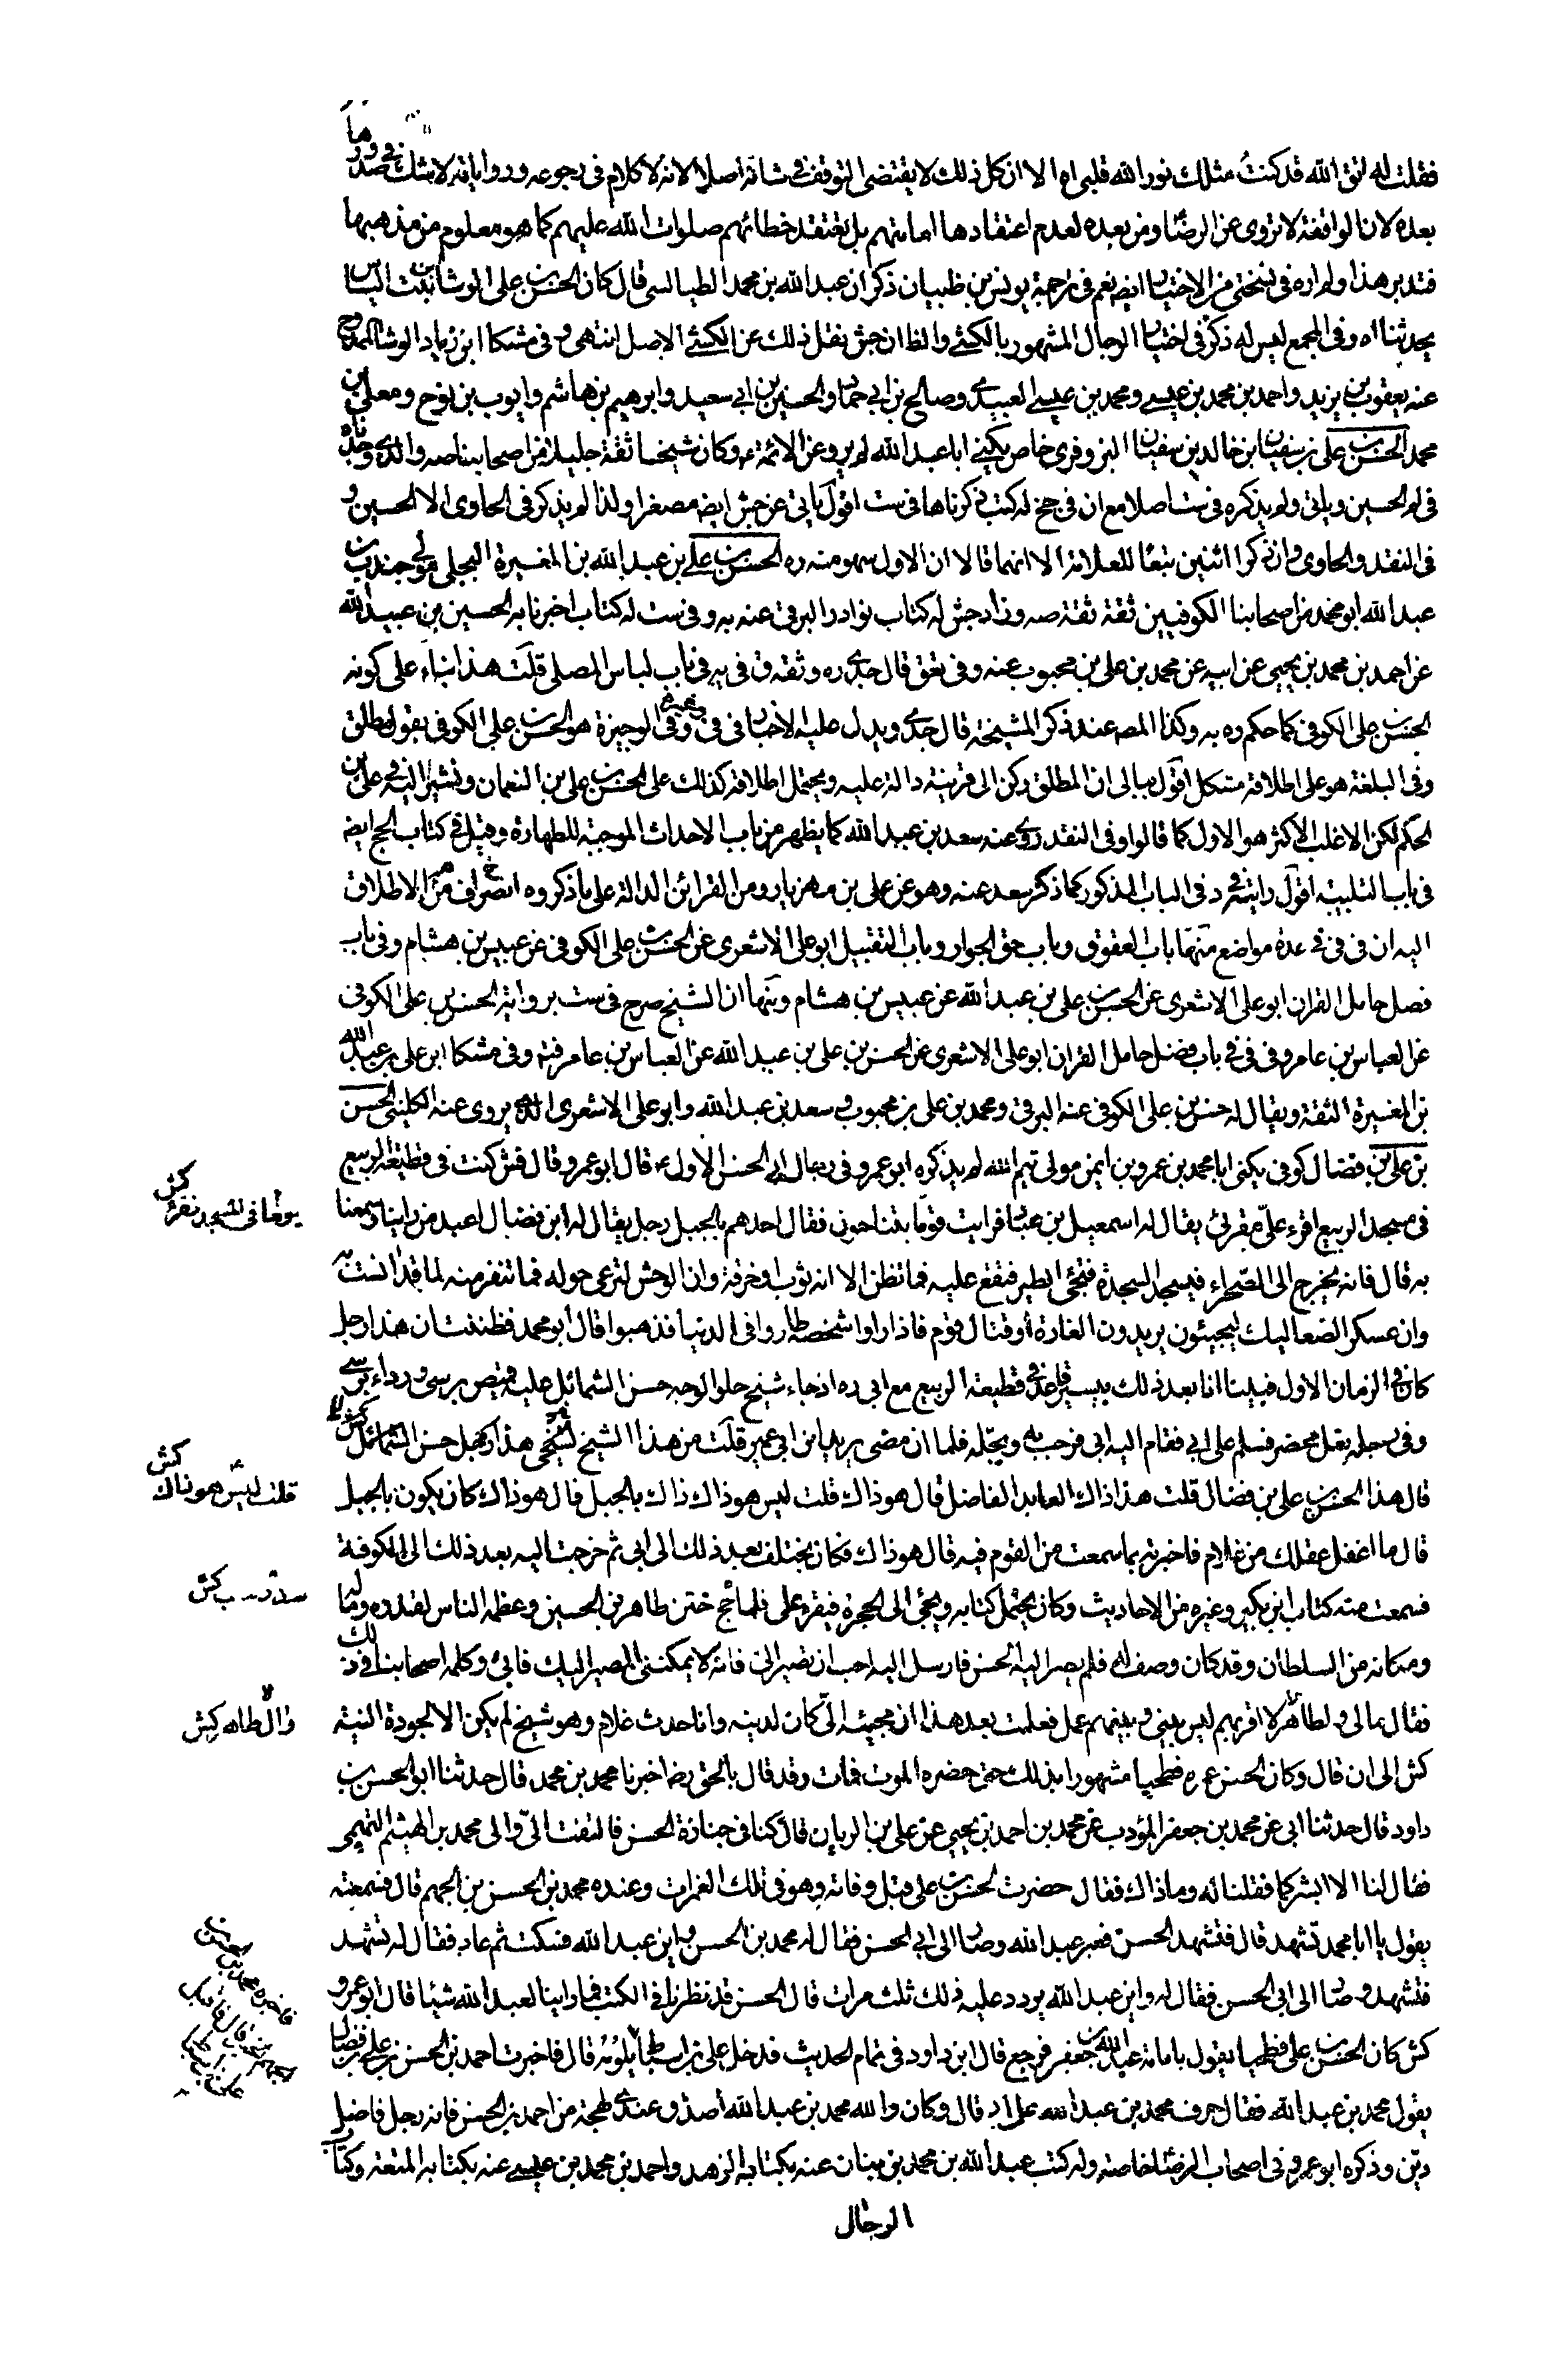 فقلت له اتق الله قد كنت مثلك نور الله قلبى اه الا ان كل ذلك لا يقتضى التوقف فى شانه اصلا لانه لا كلام فى رجوعه ورواياته لا شك فى صدورها
بعده لان الواقفة لا تروى عن الرضا ومن بعده لعدم اعتقادها امامتهم بل تعتقد خطائهم صلوات الله عليهم كما هو معلوم من مذهبها
فتدبر هذا ولم اره فى نسختى من الاختيار ايضه نعم فى ترجمة يونس بن ظبيان ذكر ان عبد الله بن محمد الطيالسى قال كان الحسن بن على الوشا بن بنت الياس
يحدثنا اه وفى المجمع ليس له ذكر فى اختيار الرجال المشهور بالكشى والظ ان جش نقل ذلك عن الكشى الاصل انتهى وفى مشكا ابن زياد الوشا الممدوح
عنه يعقوب بن يزيد واحمد بن محمد بن عيسى ومحمد بن عيسى العبيدى وصالح بن ابى حماد والحسين بن ابى سعيد وابرهيم بن هاشم وايوب بن نوح ومعلى بن
محمد الحسن بن على بن سفيان ابن خالد بن سفيان البزوفرى خاص يكنى ابا عبد الله لم يرو عن الائمة ع وكان شيخا ثقة جليلا من اصحابنا صه والذى وجدناه
فى لم الحسين وياتى ولم يذكره فى ست اصلا مع ان فى جخ له كتب ذكرناها فى ست اقول ياتى عن جش ايضه مصغرا ولذا لم يذكر فى الحاوى الا الحسين و
فى النقد والحاوى وان ذكرا اثنين تبعا للعلامة الا انهما قالا ان الاول سهو منه ره الحسن بن على بن عبد الله بن المغيرة البجلى مولى جندب بن
عبد الله ابو محمد من اصحابنا الكوفيين ثقة ثقة صه وزاد جش له كتاب نوادر البرقى عنه به وفى ست له كتاب اخبرنا به الحسين بن عبيد الله
عن احمد بن محمد بن يحيى عن ابيه عن محمد بن على بن محبوب عنه وفى تعق قال جدى ره وثقه ق فى يه فى باب لباس المصلى قلت هذا بناء على كونه
الحسن بن على الكوفى كما حكم ره به وكذا المصه عند ذكر المشيخة قال جدى ويدل عليه الاخبار فى فى وغيره وفى الوجيزة هو الحسن بن على الكوفى بقول مطلق
وفى البلغة هو على اطلاقه مشكل اقول ببالى ان المطلق ركن الى قرينة دالة عليه ويحتمل اطلاقه كذلك على الحسن بن على بن النعمان ونشير اليه فى على بن
الحكم لكن الاغلب الاكثر هو الاول كما قالوا وفى النقد روى عنه سعد بن عبد الله كما يظهر من باب الاحداث الموجبة للطهارة وقيل فى كتاب الحج ايضه
فى باب التلبية اقول رايته فى د فى الباب المذكور كما ذكر سعد عنه وهو عن على بن مهزيار ومن القرائن الدالة على ما ذكروه انصراف الاطلاق
اليه ان فى فى فى عدة مواضع منها باب العقوق وباب حق الجوار وباب التقبيل ابو على الاشعرى عن الحسن بن على الكوفى عن عبيس بن هشام وفى باب
فضل حامل القران ابو على الاشعرى عن الحسن بن على بن عبد الله عن عبيس بن هشام ومنها ان الشيخ صرح فى ست برواية الحسن بن على الكوفى
عن العباس بن عامر وفى فى فى باب فضل حامل القران ابو على الاشعرى عن الحسن بن على بن عبد الله عن العباس بن عامر فته وفى مشكا ابن على بن عبد الله
بن المغيرة الثقة ويقال له حسن بن على الكوفى عنه البرقى ومحمد بن على بن محبوب وسعد بن عبد الله وابو على الاشعرى الذى يروى عنه الكلينى الحسن
بن على بن فضال كوفى يكنى ابا محمد بن عمرو بن ايمن مولى تيم الله لم يذكره ابو عمرو فى رجال ابى الحسن الاول ع قال ابو عمرو قال فش كنت فى قطيعة الربيع
فى مسجد الربيع اقرء على مقرئ يقال له اسمعيل بن عباد فرايت قوما يتناجون فقال احدهم بالجبل رجل يقال له ابن فضال اعبد من راينا وسمعنا
به قال فانه يخرج الى الصحراء فيسجد السجدة فتجئ الطير فتقع عليه فما تظن الا انه ثوب او خرقة وان الوحش لترعى حوله فما تنفر منه لما قد انست به
وان عسكر الصعاليك ليجيئون يريدون الغارة او قتال قوم فاذا راوا شخصه طاروا فى الدنيا فذهبوا قال ابو محمد فظننت ان هذا رجل
كان فى الزمان الاول فبينا انا بعد ذلك بيسير قاعد فى قطيعة الربيع مع ابى ره اذ جاء شيخ حلو الوجه حسن الشمائل عليه قميص نرسى ورداء نرسى
وفى رجله نعل مخصر فسلم على ابى فقام اليه ابى فرحب به وبجله فلما ان مضى يريد ابن ابى عمير قلت من هذا الشيخ فقال هذا رجل حسن الشمائل
قال هذا الحسن بن على بن فضال قلت هذا ذاك العابد الفاضل قال هو ذاك قلت ليس هو ذاك ذاك بالجبل قال هو ذاك كان يكون بالجبل
قال ما اغفل عقلك من غلام فاخبرته بما سمعت من القوم فيه قال هو ذاك فكان يختلف بعد ذلك الى ابى ثم خرجت اليه بعد ذلك الى الكوفة
فسمعت منه كتاب ابن بكير وغيره من الاحاديث وكان يحمل كتابه ويجئ الى الحجرة فيقرء على فلما حج ختن طاهر بن الحسين وعظمه الناس لقدره وماله
ومكانه من السلطان وقد كان وصف له فلم يصر اليه الحسن فارسل اليه احب ان تصير الى فانه لا يمكننى المصير اليك فابى وكلمه اصحابنا فى ذلك
فقال ما لى ولطاهر لا اقربهم ليس بينى وبينهم عمل فعلمت بعد هذا ان مجيئه الى كان لدينه وانا حدث غلام وهو شيخ لم يكن الا لجودة النية
كش الى ان قال وكان الحسن عمره فطحيا مشهورا بذلك حتى حضره الموت فمات وقد قال بالحق رضه اخبرنا محمد بن محمد قال حدثنا ابو الحسن بن
داود قال حدثنا ابى عن محمد بن جعفر المؤدب عن محمد بن احمد بن يحيى عن على بن الريان قال كنا فى جنازة الحسن فالتفت الى والى محمد بن الهيثم التميمى
فقال لنا الا ابشركما فقلنا له وما ذاك فقال حضرت الحسن بن على قبل وفاته وهو فى تلك الغمرات وعنده محمد بن الحسن بن الجهم قال فسمعته
يقول يا ابا محمد تشهد قال فتشهد الحسن فعبر عبد الله وصار الى ابى الحسن فقال له محمد بن الحسن واين عبد الله فسكت ثم عاد فقال له تشهد
فتشهد وصار الى ابى الحسن فقال له واين عبد الله يردد عليه ذلك ثلث مرات قال الحسن قد نظرنا فى الكتب فما راينا لعبد الله شيئا قال ابو عمرو
كش كان الحسن بن على فطحيا يقول بامامة عبد الله بن جعفر فرجع قال ابن داود فى تمام الحديث فدخل على بن اسباط يلومه قال فاخبرت احمد بن الحسن بن على بن فضال
يقول محمد بن عبد الله فقال حرف محمد بن عبد الله على ابى قال وكان والله محمد بن عبد الله اصدق عندى لهجة من احمد بن الحسن فانه رجل فاضل
دين وذكره ابو عمرو فى اصحاب الرضا خاصة وله كتب عبد الله بن محمد بن بنان عنه بكتابه الزهد واحمد بن محمد بن عيسى عنه بكتابه المتعة وكتاب
الرجال
كش
كش
قلت ليس هو ذاك
كش
كش